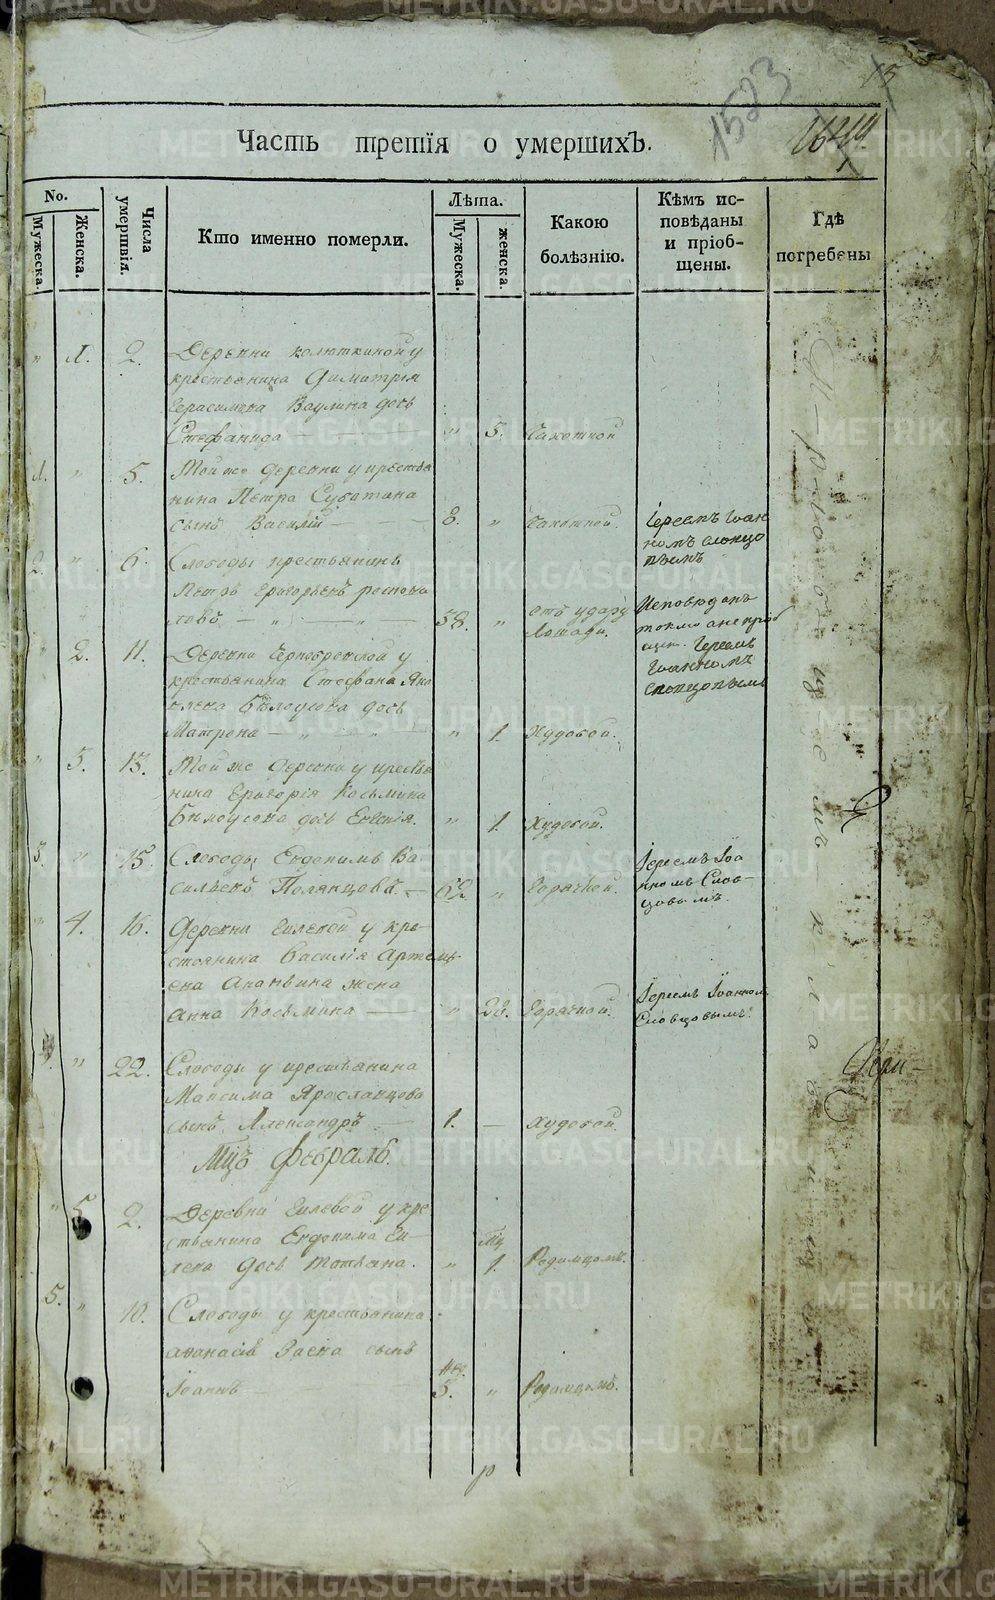 15
1523
Часть третія о умершихъ.
No.
Мужеска.
Женска.
Числа умертвія.
Кто именно померли.
Лѣта.
Мужеска.
женска.
Какою болѣзнію.
Кѣмъ исповѣданы и пріобщены.
Гдѣ погребены
" 1. 2. Деревни колюткиной у
крестьянина Димитрія
Герасимова Ваулина дочь
Стефанида — " 5. Чахоткой
1. " 5. Той же деревни у крестья
нина Петра Суботина
сынъ Василій — 8. " Чахоткой Іереемъ Іоан
номъ Словцо
вымъ
2. " 6. Слободы крестьянинъ
Петръ Григорьевъ
ловъ — 58. " отъ удару
Лошади.
Исповѣданъ
токмо а не пріоб
щен. Іереемъ
Іоанномъ
Словцовымъ
2. 11. Деревни у
крестьянина Стефана Яко
влева Бѣлоусова дочь
Матрона — " 1. Худобой.
" 3. 13. Той же деревни у крестья
нина Григорія Косьмина
Бѣлоусова дочь Евгенія. " 1. Худобой.
3. " 15. Слободы Евдокимъ Ва
сильевъ Полянцовъ. — 62 " Горячкой. Іереемъ Іоа
нномъ Слов-
цовымъ.
" 4. 16. Деревни Гилевой у кре-
стьянина Василія Артемь
ева Ананьина жена
Анна Косьмина — " 28. Горячкой. Іереемъ Іоанном
Словцовымъ.
" 22. Слободы у крестьянина
Максима Ярославцова
сынъ Александръ — 1. — Худобой.
Мцъ Февраль.
" 5 2. Деревни Гилевой у кре
стьянина Евдокима Ги-
лева дочь Татьяна. " мц 1. Родимцомъ.
5. " 10. Слободы у крестьянина
Аѳанасія Заева сынъ
Іоаннъ — 5. " Родимцомъ.
На приходскомъ кладбищѣ
METRIKI.GASO-URAL.RU